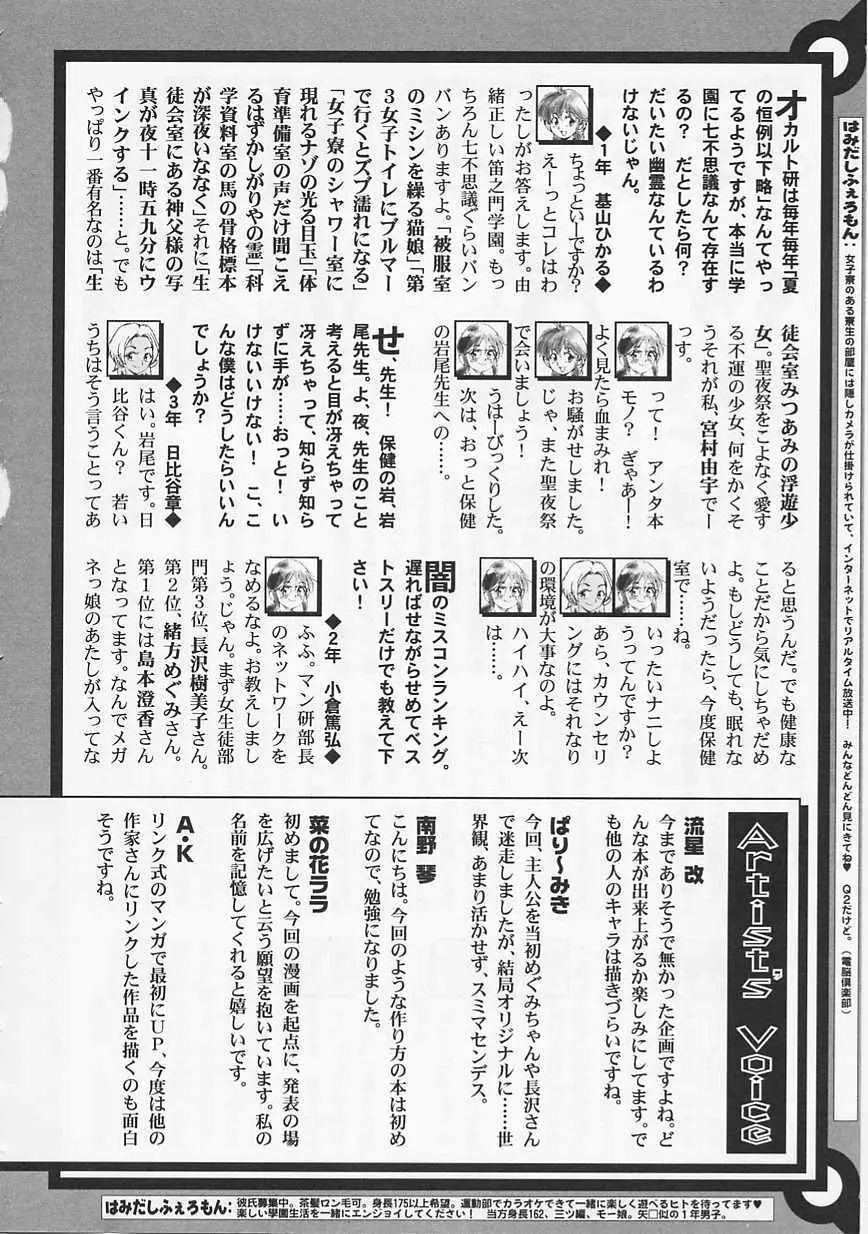 オカルト研は毎年毎年「夏
の恒例以下略」なんてやっ
てるようですが、本当に学
園に七不思議なんて存在す
るの？　だとしたら何？
だいたい幽霊なんているわ
けないじゃん。
◆1年　基山ひかる◆
ちょっといーですか？
えーっとコレはわ
ったしがお答えします。由
緒正しい笛之門学園。もっ
ちろん七不思議ぐらいバン
バンありますよ。「被服室
のミシンを繰る猫娘」「第
3女子トイレにブルマー
で行くとズブ濡れになる」
「女子寮のシャワー室に
現れるナゾの光る目玉」「体
育準備室の声だけ聞こえ
るはずかしがりやの霊」「科
学資料室の馬の骨格標本
が深夜いななく」それに「生
徒会室にある神父様の写
真が夜十一時五九分にウ
インクする」……と。でも
やっぱり一番有名なのは「生
徒会室みつあみの浮遊少
女」。聖夜祭をこよなく愛す
る不運の少女、何をかくそ
うそれが私、宮村由宇でー
っす。
って！　アンタ本
モノ？　ぎゃあー！
よく見たら血まみれ！
お騒がせしました。
じゃ、また聖夜祭
で会いましょう！
うはーびっくりした。
次は、おっと保健
の岩尾先生への……。
せ、先生！　保健の岩、岩
尾先生。よ、夜、先生のこと
考えると目が冴えちゃって
冴えちゃって、知らず知ら
ずに手が……おっと！　い
けないいけない！　こ、こ
んな僕はどうしたらいいん
でしょうか？
◆3年　日比谷章◆
はい。岩尾です。日
比谷くん？　若い
うちはそう言うことってあ
ると思うんだ。でも健康な
ことだから気にしちゃだめ
よ。もしどうしても、眠れな
いようだったら、今度保健
室で……ね。
いったいナニしよ
うってんですか？
あら、カウンセリ
ングにはそれなり
の環境が大事なのよ。
ハイハイ、えー次
は……。
闇のミスコンランキング。
遅ればせながらせめてベス
トスリーだけでも教えて下
さい！
◆2年　小倉篤弘◆
ふふ。マン研部長
のネットワークを
なめるなよ。お教えしまし
ょう。じゃん。まず女生徒部
門第3位、長沢樹美子さん。
第2位、緒方めぐみさん。
第1位には島本澄香さん
となってます。なんでメガ
ネっ娘のあたしが入ってな
Artist's Voice
流星 改
今までありそうで無かった企画ですよね。ど
んな本が出来上がるか楽しみにしてます。で
も他の人のキャラは描きづらいですね。
ぱり〜みき
今回、主人公を当初めぐみちゃんや長沢さん
で迷走しましたが、結局オリジナルに……世
界観、あまり活かせず、スミマセンデス。
南野 琴
こんにちは。今回のような作り方の本は初め
てなので、勉強になりました。
菜の花ララ
初めまして。今回の漫画を起点に、発表の場
を広げたいと云う願望を抱いています。私の
名前を記憶してくれると嬉しいです。
A・K
リンク式のマンガで最初にUP、今度は他の
作家さんにリンクした作品を描くのも面白
そうですね。
はみだしふぇろもん：女子寮のある寮生の部屋には隠しカメラが仕掛けられていて、インターネットでリアルタイム放送中！　みんなどんどん見にきてね♥　Q2だけど。（電脳倶楽部）
はみだしふぇろもん：彼氏募集中。茶髪ロン毛可。身長175以上希望。運動部でカラオケできて一緒に楽しく遊べるヒトを待ってます♥
楽しい學園生活を一緒にエンジョイしてください！　当方身長162、三ツ編、モー娘。矢□似の1年男子。